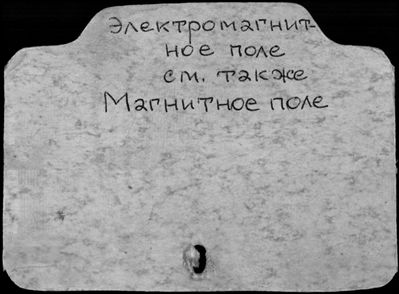 Электромагнит-
ное поле
см. также
Магнитное поле